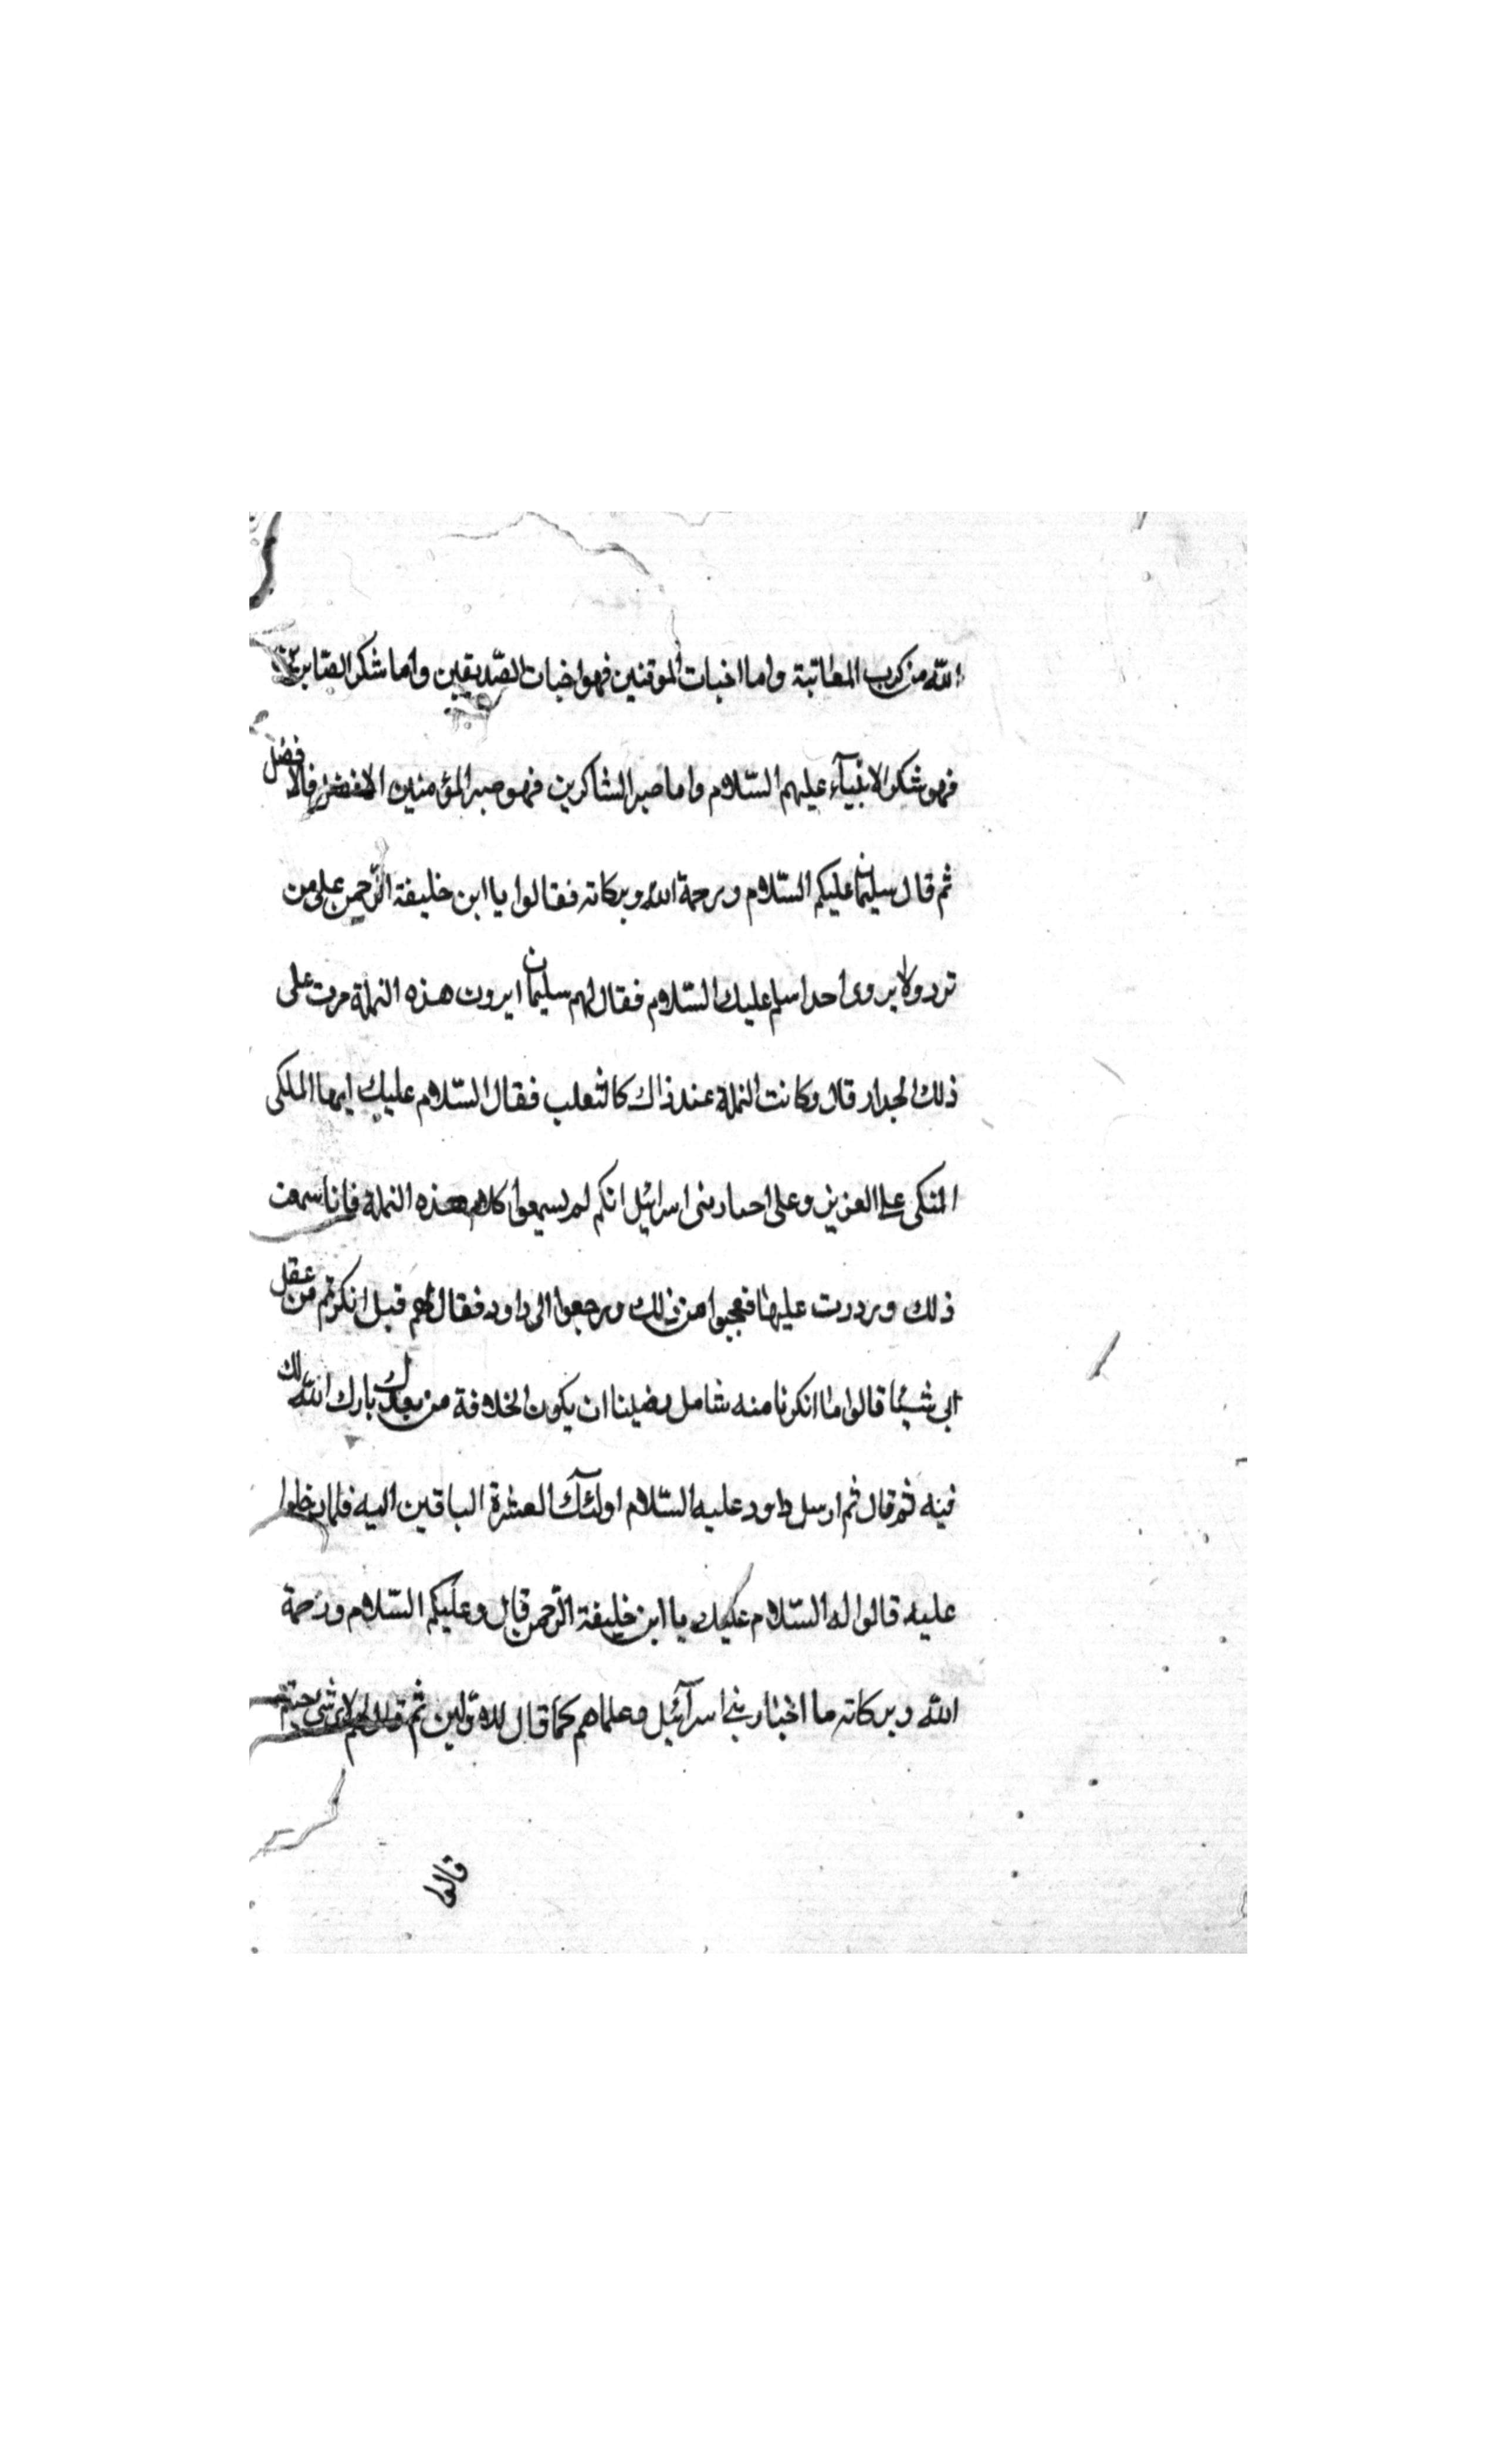 الله من كرب المطاتبة واما اخبات الموقنين فهو اخبات الصّديقين واما شكر الصّابرين
فهو شكر الانبيآء عليهم السّلام واما صبر الشاكرين فهو صبر المؤمنين الافضل فالافضل
ثم قال سليمان عليكم السّلام ورحمة الله وبركاته فقالوا يا ابن خليفة الرّحمن على من
ترد ولا يروى احدا سلم عليك السّلام فقال لهم سليمان ايرون هذه النملة مرت على
ذلك الجدار قال وكانت النملة عند ذاك كالثعلب فقال السّلام عليك ايها الملكى
المتكى على العزيز وعلى احبار بنى اسرائيل انكم لم تسمعوا كلام هذه النملة فانا سمعت
ذلك ورددت عليها فعجبوا من ذلك ورجعوا الى داود فقال لهم قبل انكرتم من عقل
ابى شيئا قالوا ما انكرنا منه شامل رضينا ان يكون الخلافة من بعدك بارك الله لك
فيه ثم قال ثم ارسل داود عليه السّلام اولئك العشرة الباقين اليه فلما دخلوا
عليه قالوا له السّلام عليك يا ابن خليفة الرّحمن قال وعليكم السّلام ورحمة
الله وبركاته ما اخبار بنى اسرآئيل وعلماهم كما قال للاوّلين ثم قال لهم لاى شى جئتم
قالوا